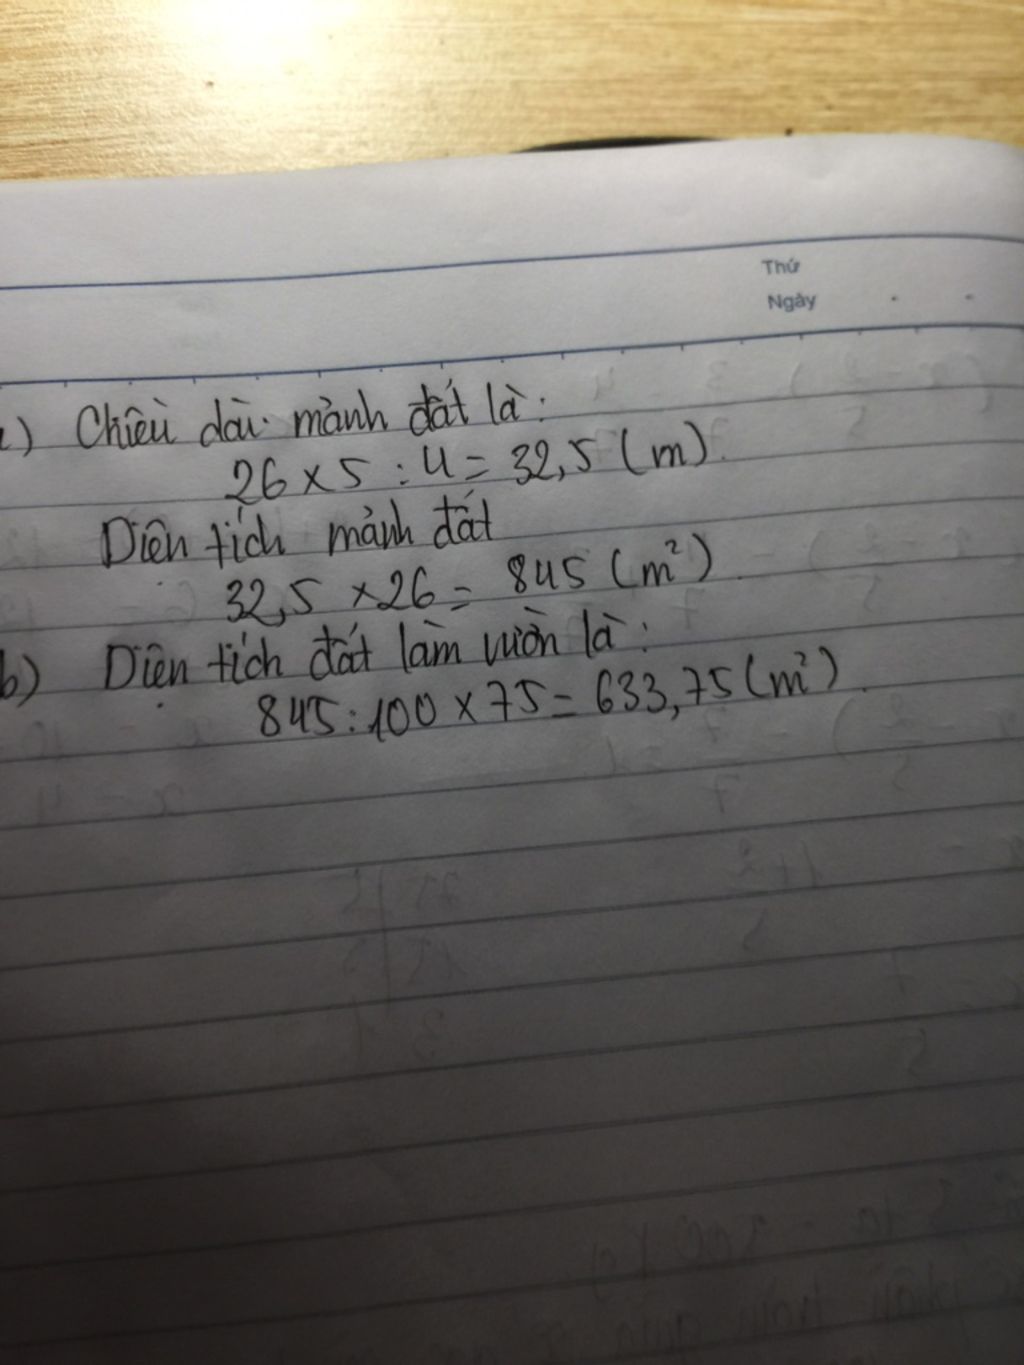 Thứ
Ngày
) Chiều dài mảnh đất là:
26 x 5 : 4 = 32,5 (m)
Diện tích mảnh đất
32,5 x 26 = 845 (m²)
b) Diện tích đất làm vườn là:
845 : 100 x 75 = 633,75 (m²)